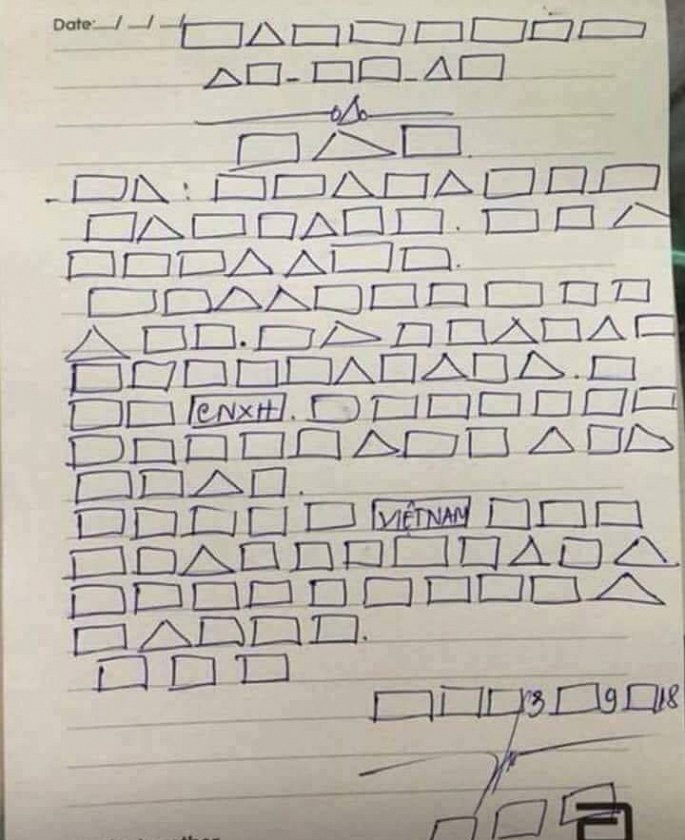 Date: / / /
CNXH.
VIỆTNAM
3 9 18